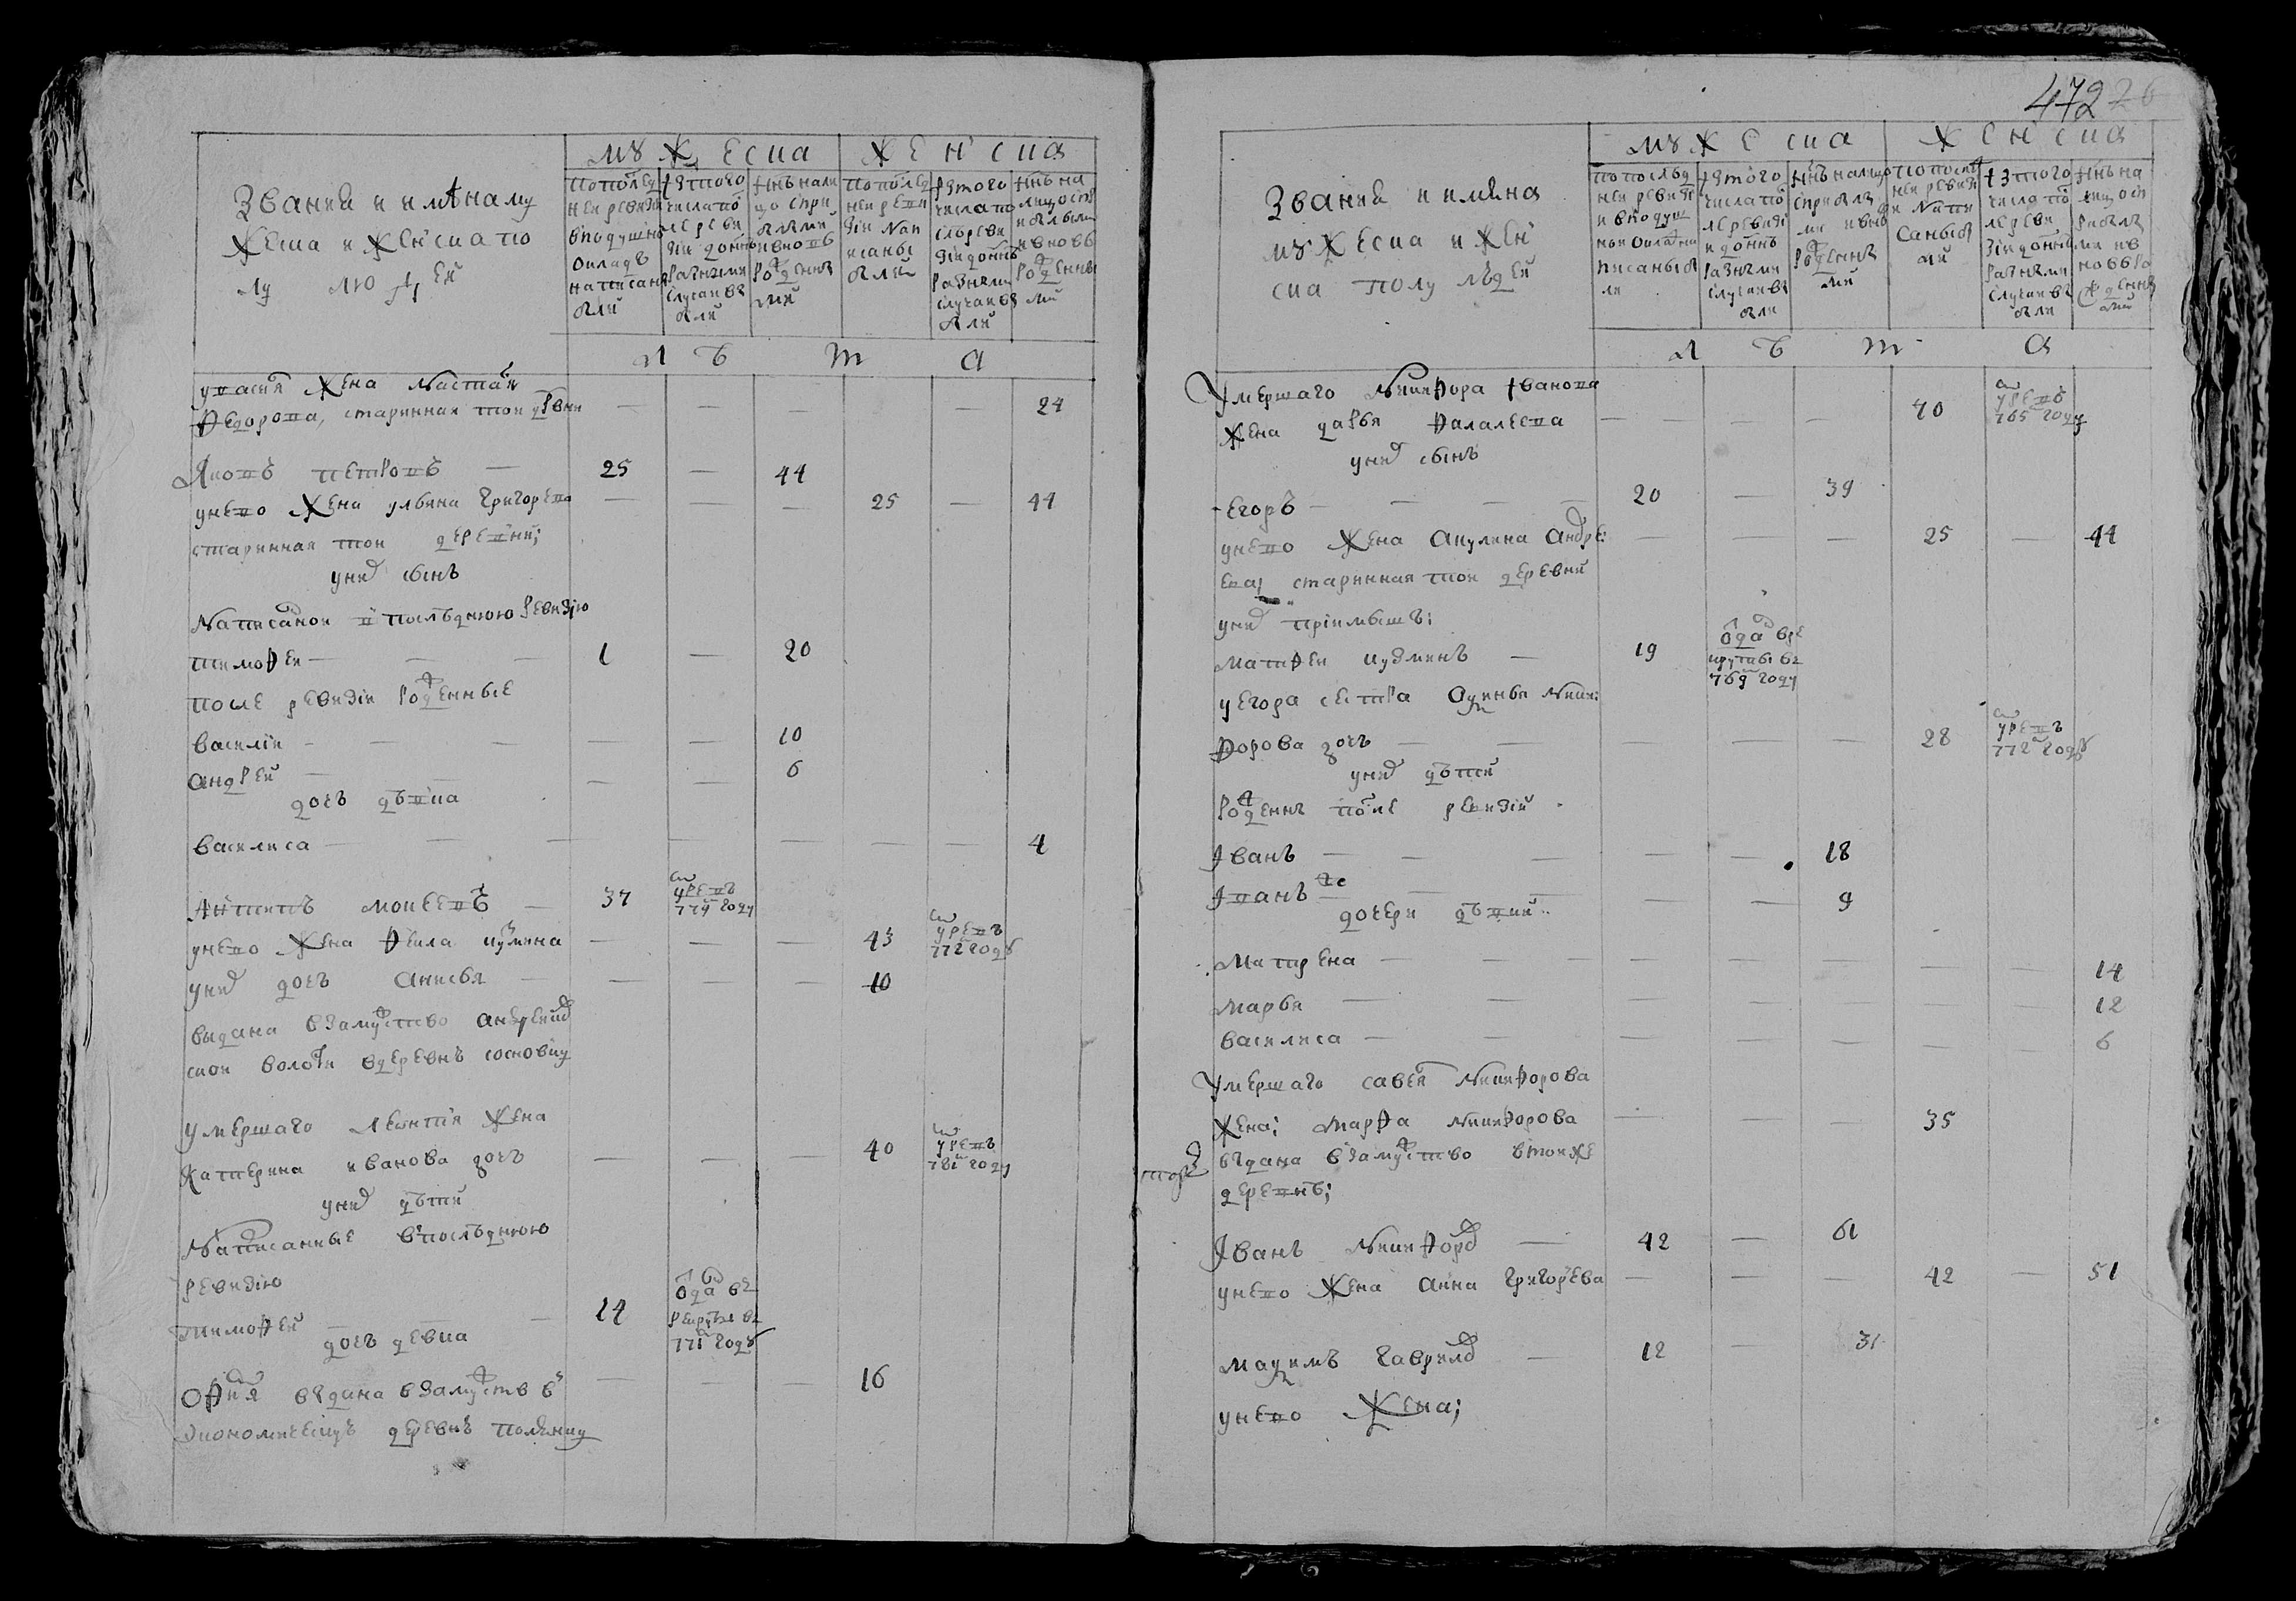 472
муж еска
женска
Звания и имѣна му
жеска и женска по
лу людей
по послед
ней ревизи
в подушно
окладъ
написан
ыли
из того
числа по
ле реви
зіи до ннѣ
разными
случаи вы
были
ннѣ нали
цо с при
былми
и вновь
рожденны
ми
по послед
ней реви
зіи нап
исаны
были
из того
числа по
сле реви
зіи до ннѣ
разными
случаи вы
были
ннѣ на
лицо с при
былыми
и вновь
рожденны
ми
л ѣ т а
у васья жена настася
федорова, старинная тои дрвни — — — — 24
яковъ петровъ — 25 — 44
у нево жена ульяна григорева — — — 25 — 44
старинная тои деревни;
у них сынъ
написанои в последнюю ревизiю
тимофеи — 1 — 20
после ревизiи рожденные
василiи — — — 10
андреи — — — 6
дочь дѣвка
василиса — — — — — 4
антипъ мокеевъ — 37 — умре въ 779 году
у нево жена фекла кузмина — — — 43 умре въ 772 году
у них дочь анисья — — — 10
выдана в замужство андреевс
кои волости в деревнѣ сосновку
умершаго леонтiя жена
катерина иванова дочь — — — 40 умре въ 781 году
у них дѣти
написанные в последнюю
ревизiю
тимофеи — 14 отдан в рекруты в 771 году
дочь девка
офимя выдана в замужств в — — — 16
экономическую деревнѣ поляну
Звания и имѣна
мужеска и жен
ска полу людей
муж е ска
ж е н ска
по послѣд
ней ревизи
и в подуш
ном окладе
писаны бы
ли
из того
числа по
ле ревизi
и до ннѣ
разными
случаи вы
были
ннѣ на лицо
с прибылы
ми и внов
рожденны
ми
по послед
ней ревизи
и напи
саны бы
ли
из того
числа по
ле реви
зiи до ннѣ
разными
случаи вы
были
ннѣ на
лицо с
прибылы
ми и в
новь ро
жденны
ми
л ѣ т а
умершаго никифора иванова
жена дарья фалалеева — — — — 70 умре въ 765 году
у них сынъ
егоръ — — — 20 — 39
у нево жена акулина андре — — — 25 — 44
ева; старинная тои деревни
у них прiимышъ:
матфеи кузминъ — 19 отдан в рекруты в 769 году
у егора сестра овдотья ники
форова дочь — — — 28 умре въ 772 году
у них дѣти
рожденны после ревизiи
иванъ — — — 18
иванъ же — — — 9
дочери дѣвки
матрена — — — — — 14
марья — — — — — 12
василиса — — — — — 6
умершаго савеля никифорова
жена; марфа никифорова — — — 35
выдана в замужство в тои же
деревнѣ;
иванъ никифоров — 42 — 61
у нево жена анна григорьева — — — 42 — 51
максимъ гаврилов — 12 — 31
у нево жена;